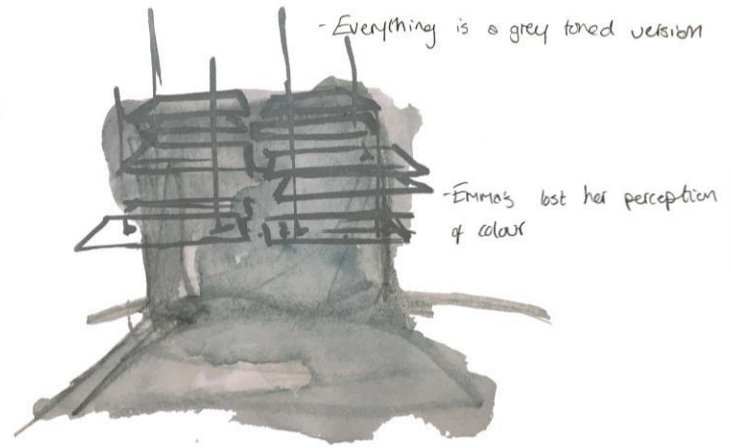 - Everything is a grey toned version
- Emmas lost her perception
of colour